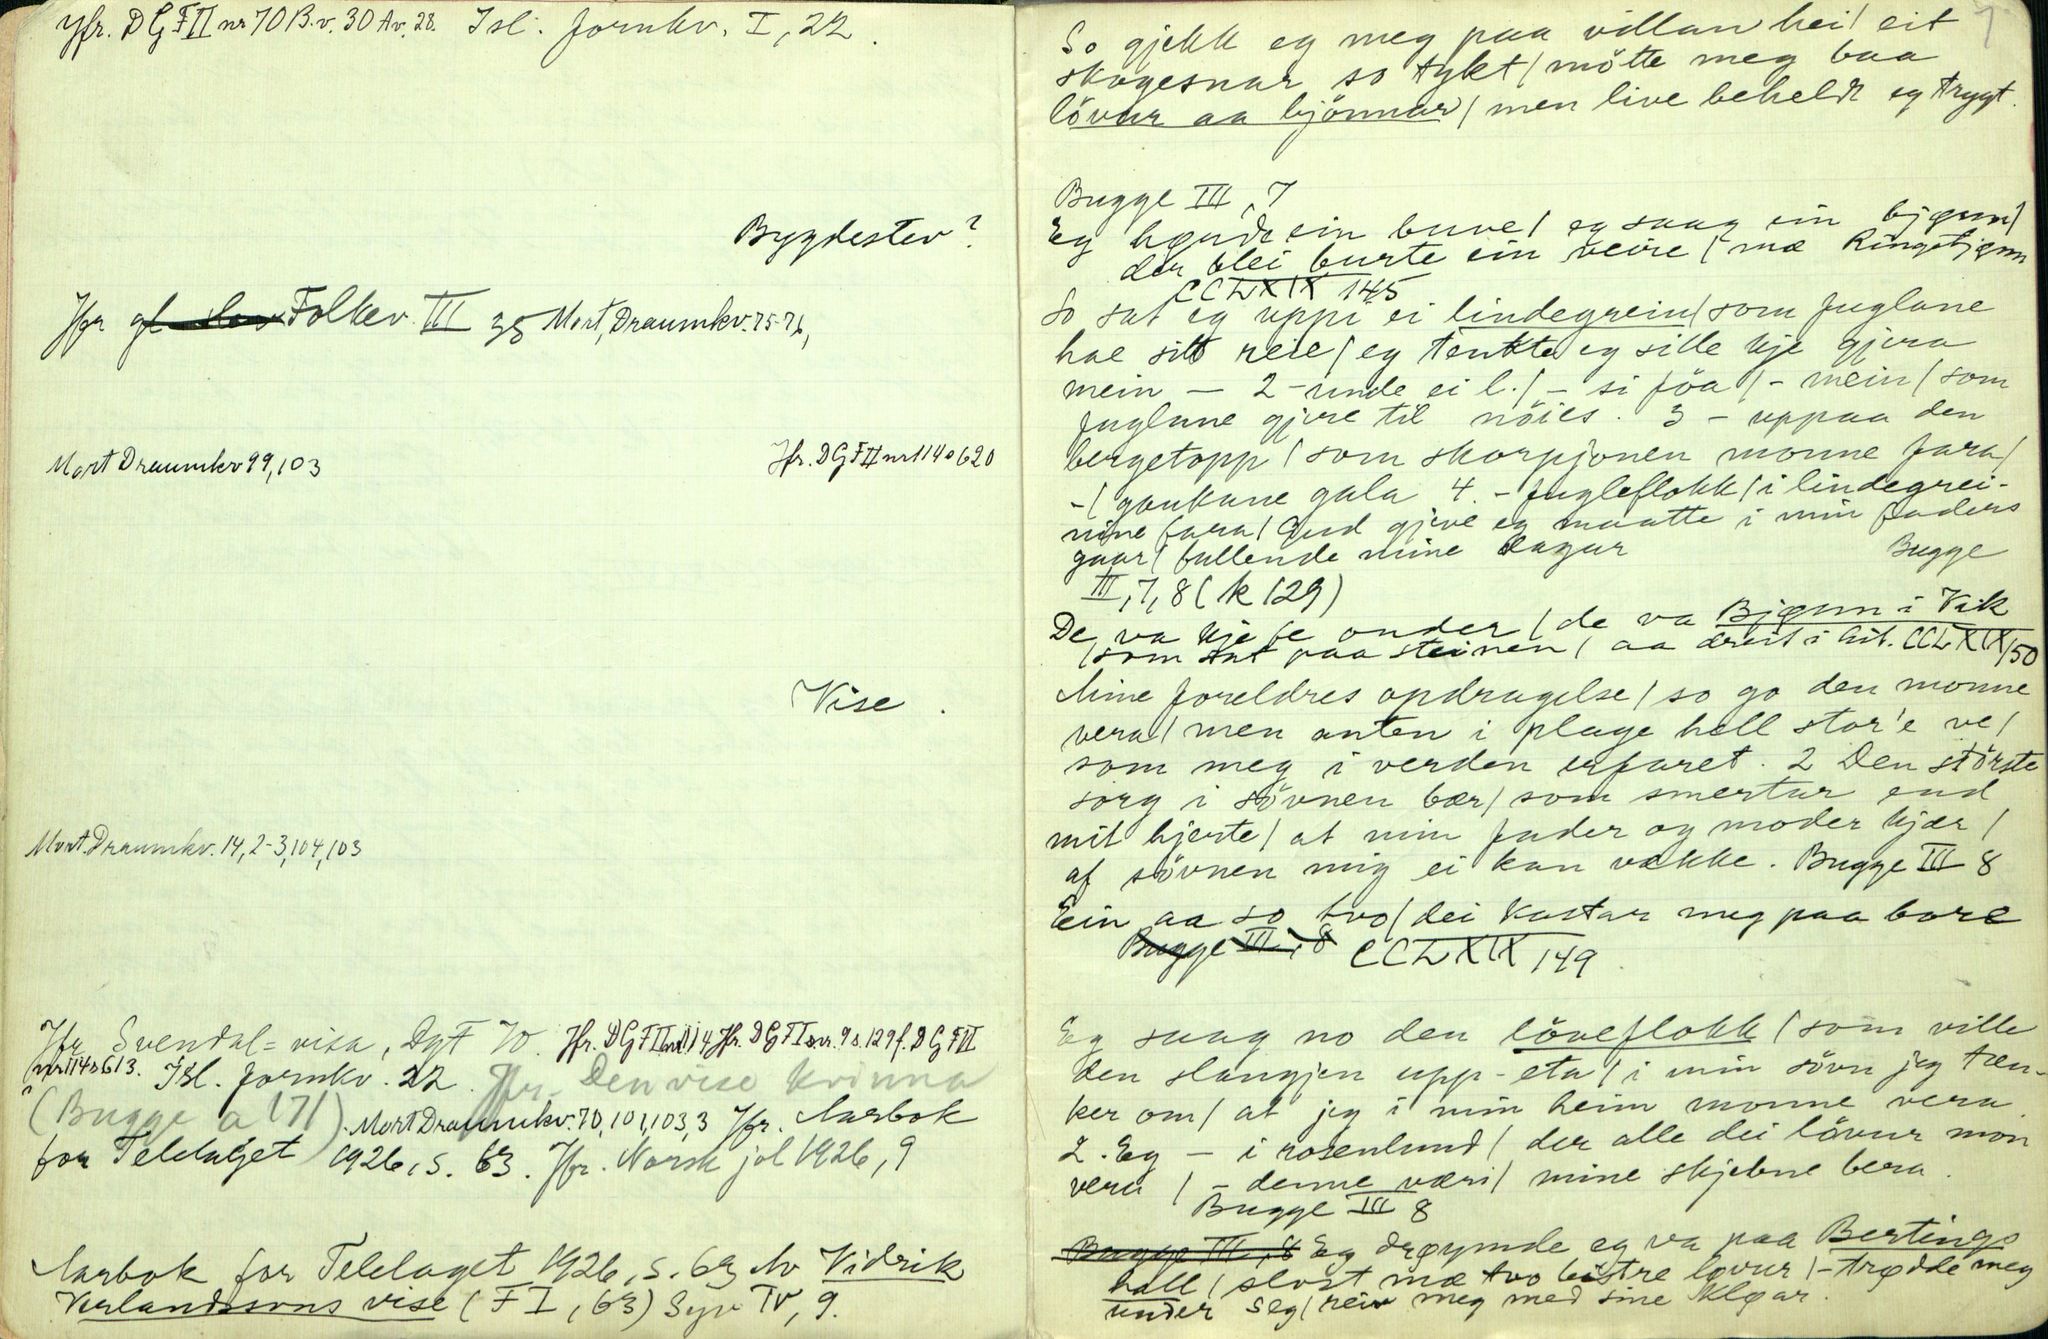 Jfr. DGF II nr 70 B.v. 30 Av. 28. Isl. fornkv. I, 22.
Bygdestev?
Jfr Folkev. III 38 Mort, Draumkv. 75-76,
Mort Draumkv 99, 103
Jfr. DGF II nr 114 s 620
Vise.
Mort. Draumkv. 14, 2-3, 104, 103
Jfr Svendal=visa, DgF 70. Jfr. DGF II nr 114 Jfr. DGF I nr. 9 s. 129 f. DGF II
nr 114 s 613. Isl. fornkv. 22. Jfr. Den vise kvinna
(Bugge a 171). Mort Draumkv. 70, 101, 103, 3 Jfr. Aarbok
for Telelaget 1926, s. 63. Jfr. Norsk jol 1926, 9
Aarbok for Telelaget 1926, s. 63 Av Vidrik
Verlandssons vise (F I, 63) Syv IV, 9.
7
So gjekk eg meg paa villan hei/ eit
skogesnar so tykt/ mötte meg baa
lövur aa bjönnar/ men live beheldt eg trygt.
Bugge III, 7
Eg høyrde ein buve/ eg saag ein bjønn/
der blei burte ein veire/ mæ Ringetjønn
CCLXIX 145
So sat eg uppi ei lindegrein/ som fuglane
hae sitt reie/ eg tenkte eg sille kje gjera
mein — 2 - unde ei l./ - si föa/ - mein/ som
fuglane gjere til nöies. 3 - uppaa den
bergetopp/ som skorpjonen monne fara/
-/ gaukane gala 4. - fugleflokk/ i lindegrei-
nine fara/ Gud gjeve eg maatte i min faders
gaar/ fullende mine dagur Bugge
III, 7, 8 (k 129)
De va kje le onder/ de va Bjønn i Vik
/som sat paa steinen/ aa dreit i hit. CCLXIX/50
Mine foreldres opdragelse/ so go den monne
vera/ men anten i plage hell stor'e ve/
som meg i verden erfaret. 2 Den störste
sorg i sövnen bær/ som smertar end
mit hjerte/ at min fader og moder kjær/
af sövnen mig ei kan vække. Bugge III 8
Ein aa so tvo/ dei kastar meg paa bore
Bugge III, 8 CCLXIX 149.
Eg saag no den löveflokk/ som ville
den slangjen upp-eta/ i min sövn jeg tæn-
ker om/ at jeg i min heim monne vera.
2. Eg — i rosenlund/ der alle dei lövur mon
vera/ - denne væri/ mine skjebne bera.
Bugge III 8
Bugge III, 8 Eg drøymde eg va paa Bertings
hall/ slost mæ tvo bistre løvur/ - trødde meg
under seg/ reiv meg med sine kløar.